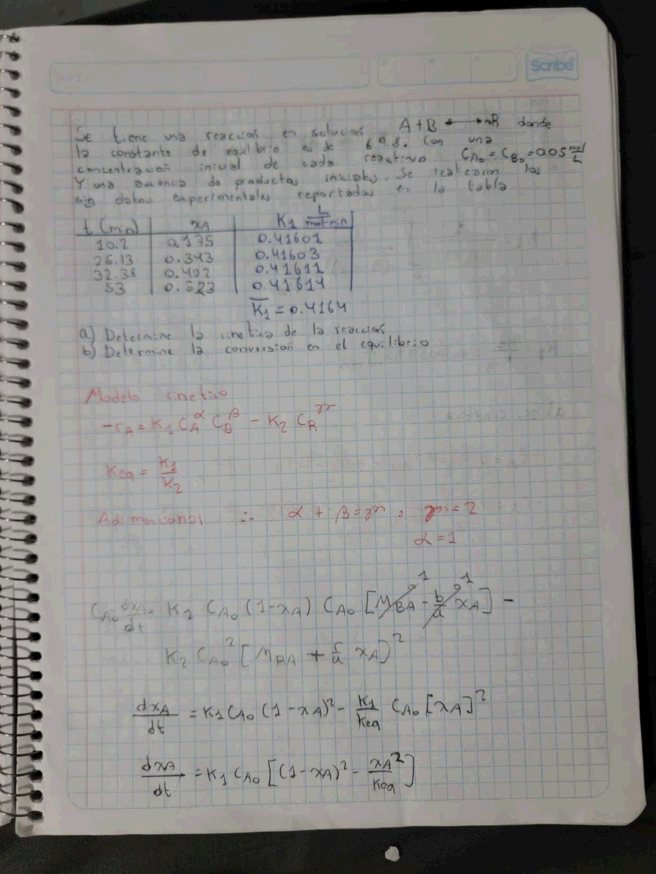 Scribe
Se tiene una reacción en solución A + B ⟷ nR donde
la constante de equilibrio es de 698. Con una
concentración inicial de cada reactivo C_A0 = C_B0 = 0.05 mol/L
Y una ausencia de productos iniciales. Se realizaron las
sig datos experimentales reportados en la tabla
t (min) | xA | K1 L/mol·min
10.2 | 0.175 | 0.41601
26.13 | 0.343 | 0.41603
32.38 | 0.402 | 0.41611
53 | 0.523 | 0.41614
K̄1 = 0.4164
a) Determine la cinetica de la reacción
b) Determine la conversion en el equilibrio
Modelo cinetico
-rA = K1 CA^α CB^β - K2 CR^n
Keq = K1/K2
Adimensional ∴ α + β = n = n = 2
α = 1
CA0 dxA/dt = K1 CA0 (1 - xA) CA0 [MBA 1 - b/a 1 xA] -
K2 CA0² [MRA + r/a xA]²
dxA/dt = K1 CA0 (1 - xA)² - K1/Keq CA0 [xA]²
dxA/dt = K1 CA0 [(1 - xA)² - xA²/Keq]